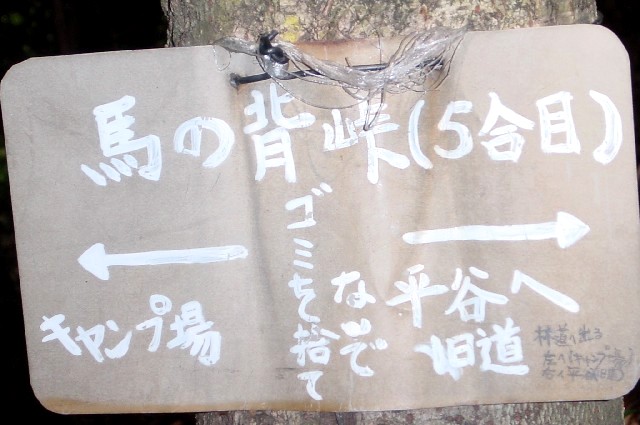 馬の背峠(5合目)
キャンプ場
ゴミを捨て
ないで
平谷へ
旧道
林道へ出る
左へ(キャンプ場)